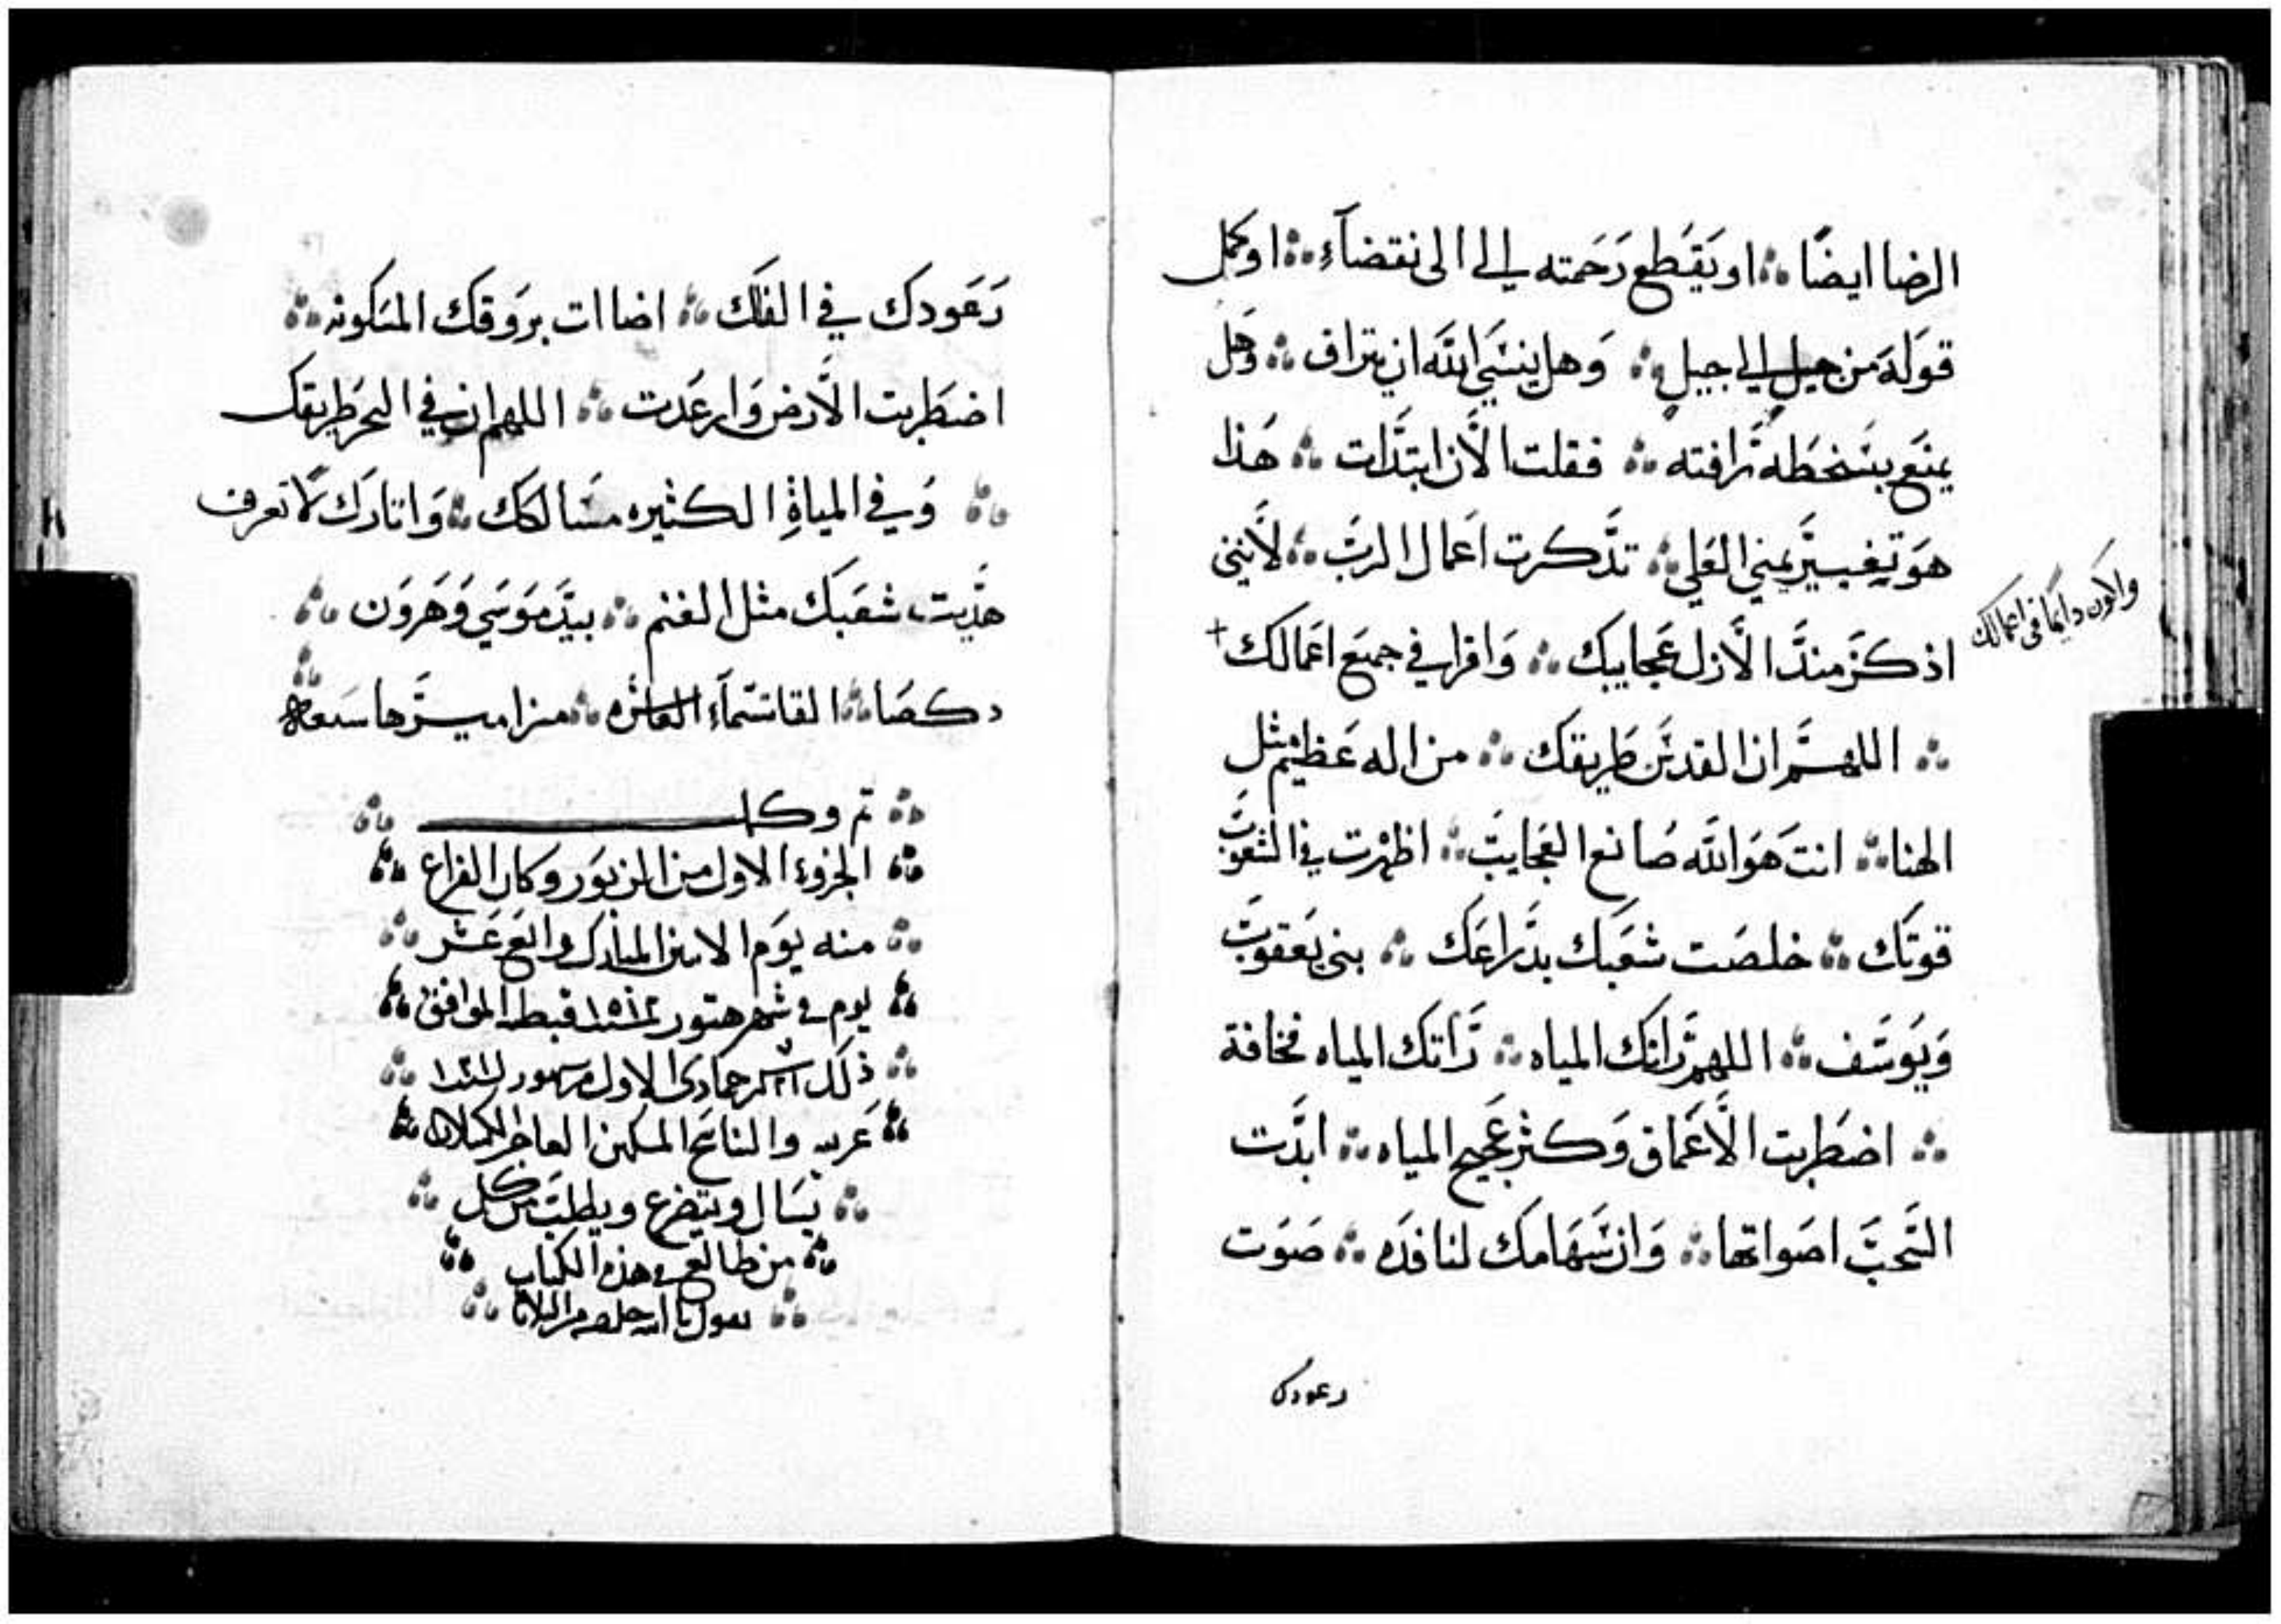 الرضا ايضًا ؞ او يَقطع رَحمته الى الى نقضآء ؞ او كمل
قوله من جيل الى جيل ؞ وَهل ينسَي الله ان يتراف ؞ وَهل
يمنَع بسَخطه رَافته ؞ فقلت الأن ابتدَّات ؞ هَذا
هوَ تغييَر يمني العَلي ؞ تذَّكرت اعَمال الربّ ؞ لأنني
اذكرَ منذَّ الأزل عَجايبك ؞ وَاقرا في جميَع اعَمالك +
والكون دايما في اعمالك
؞ اللهمَّ ان القدسَ طريقك ؞ من اله عَظيم مثل
الهنا ؞ انتَ هوَ الله صَانع العَجايبَ ؞ اظهرت في الشعوبَ
قوتَك ؞ خلصَت شعَبك بذَّراعَك ؞ بني يَعقوبَ
وَيوسَف ؞ اللهمَّ راتك المياه ؞ رَاتك المياه فخافة
؞ اضطَربت الأعَماق وَكثر عَجيج المياه ؞ ابدَّت
السَّحبَ اصَواتها ؞ وَان سَهَامك لنافذَه ؞ صَوَت
رعودك
رَعَودك في الفلَك ؞ اضاات بروَقك المسَكونه ؞
اضطَربت الأرَض وَارعَدت ؞ اللهم ان في البحَر طَريقك
؞ وَفي المياة الكثيره مسَالكك ؞ وَاثارَك لا تعَرف
هدَّيت شعَبك مثل الغنم ؞ بيدَ موَسَي وَهَروَن ؞
دكصَا ؞ القاسَمآء العاشره ؞ مزاميرَها سَبعه ؞
؞ تم وكمل ؞
؞ الجزوء الاول من المزبوَر وكان الفراغ ؞
؞ منه يوَم الاثنين المبارَك رابَع عَشر ؞
؞ يوم في شهر هتور ١٥١٢ قبطيه الموافق ؞
؞ ذلك شهر جمادى الاول من شهور ؞
؞ عَربيه والناسَخ المسكين العاجز الكسلان ؞
؞ يسَال ويتضرع ويطلبَ من كل ؞
؞ من طالع في هذه الكتاب ؞
؞ يقول يا الله خلصه من البلايا ؞